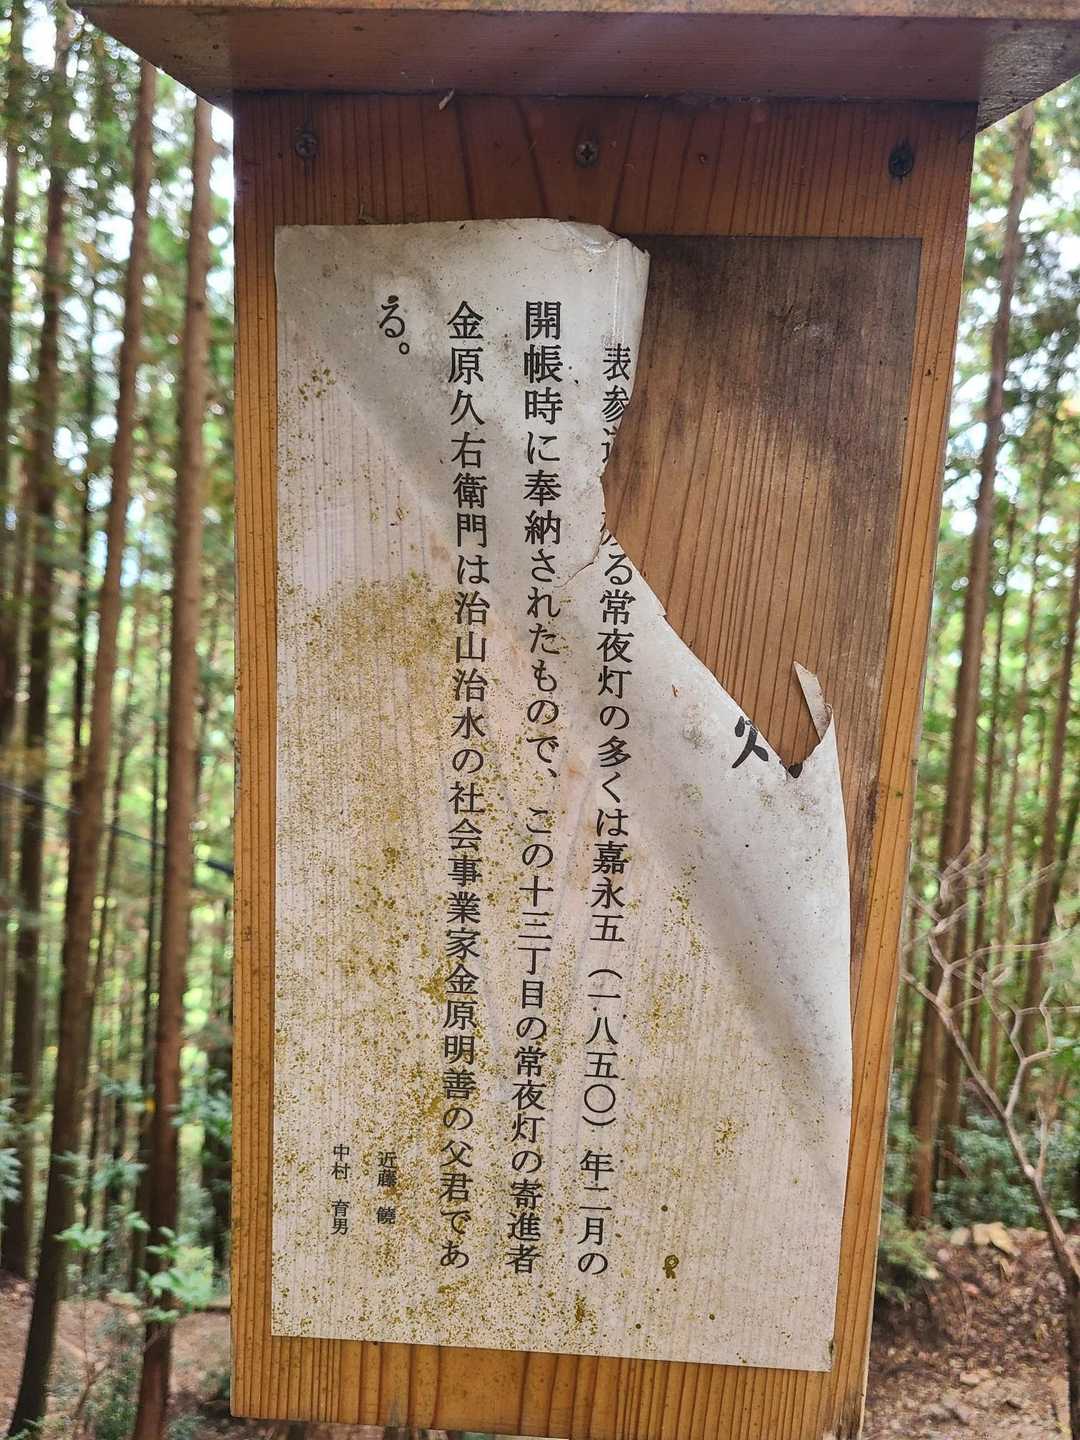 表参 る常夜灯の多くは嘉永五（一八五〇）年二月の
開帳時に奉納されたもので、この十三丁目の常夜灯の寄進者
金原久右衛門は治山治水の社会事業家金原明善の父君であ
る。
近藤
中村 育男